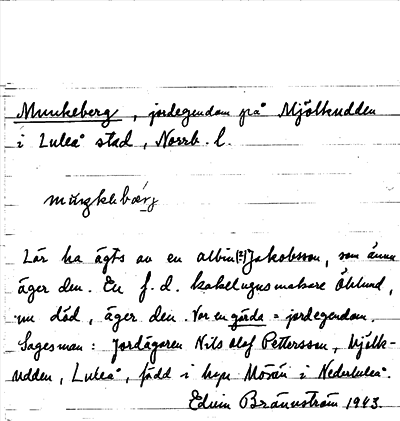 Munkeberg, jordegendom på Mjölkudden
i Luleå stad, Norrb. l.
muŋkəbærj
Lär ha ägts av en albin(?) Jakobsson, som ännu
äger den. En f.d. kakelugnsmakare Öhlund,
nu död, äger den. Var en gärda = jordegendom.
Sagesman: Jordägaren Nils Olof Pettersson, Mjölk-
udden, Luleå, född i byn Mörån i Nederluleå.
Edvin Brännström 1943.